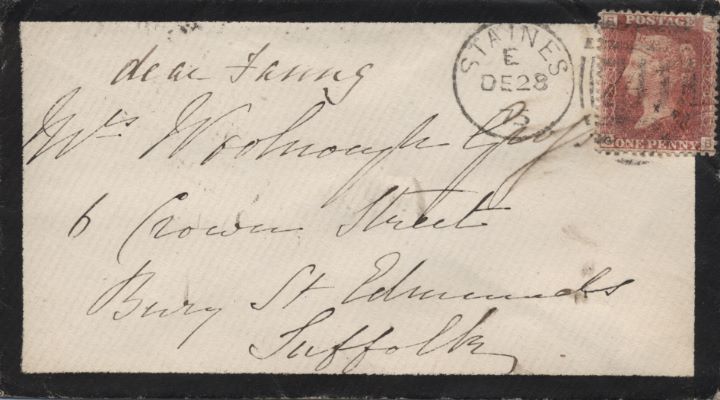 dear Fanny
Mrs Woolnough Gipps
6 Crown Street
Bury St Edmunds
Suffolk
STAINES
E
DE 28
75
POSTAGE
ONE PENNY
G B